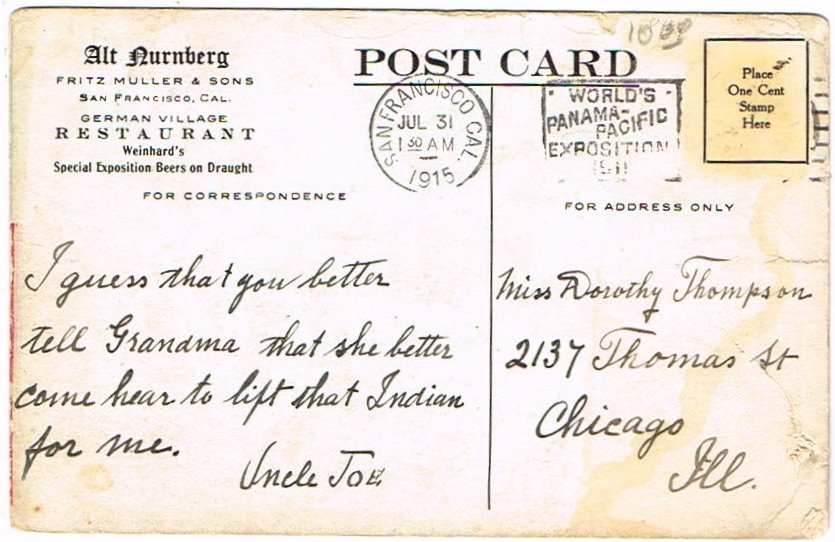 Alt Nurnberg
FRITZ MULLER & SONS
SAN FRANCISCO, CAL.
GERMAN VILLAGE
RESTAURANT
Weinhard's
Special Exposition Beers on Draught
FOR CORRESPONDENCE
POST CARD
SAN FRANCISCO CAL.
JUL 31
1 30 AM
1915
WORLD'S
PANAMA-
PACIFIC
EXPOSITION
Place
One Cent
Stamp
Here
FOR ADDRESS ONLY
I guess that you better
tell Grandma that she better
come hear to lift that Indian
for me.
Uncle Joe
Miss Dorothy Thompson
2137 Thomas St
Chicago
Ill.